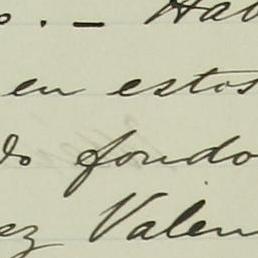 . — Hab
en estos
do fondo
ez Valen